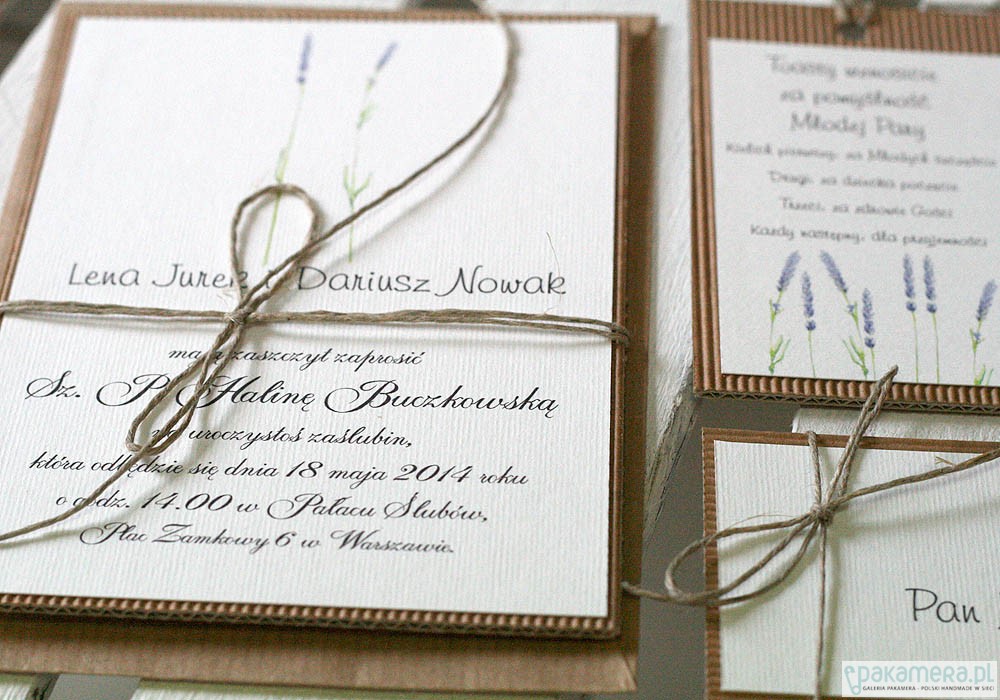 Lena Jurek i Dariusz Nowak
mają zaszczyt zaprosić
Sz. P. Halinę Buczkowską
na uroczystoś zaślubin,
która odbędzie się dnia 18 maja 2014 roku
o godz. 14.00 w Pałacu Ślubów,
Plac Zamkowy 6 w Warszawie.
Toasty wznosicie
za pomyślność
Młodej Pary
Kielich pierwszy, za Młodych szczęście
Drugi, za dziecka poczęcie
Trzeci, za zdrowie Gości
Każdy następny, dla przyjemności
Pan
pakamera.pl
GALERIA PAKAMERA - POLSKI HANDMADE W SIECI